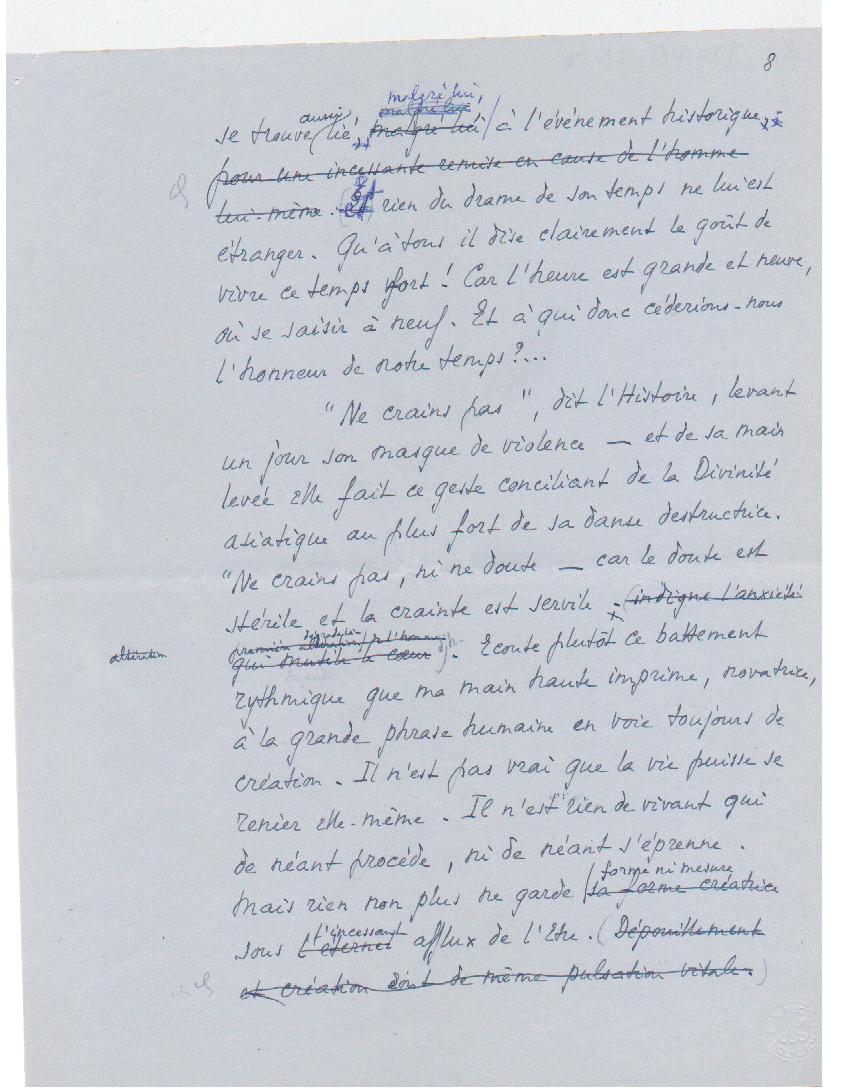 8
malgré lui,
aussi, malgré lui
se trouve lié, malgré lui à l'événement historique,
pour une incessante remise en cause de l'homme
lui-même. Et rien du drame de son temps ne lui est
étranger. Qu'à tous il dise clairement le goût de
vivre ce temps fort! Car l'heure est grande et neuve,
où se saisir à neuf. Et à qui donc céderions-nous
l'honneur de notre temps?...
"Ne crains pas", dit l'Histoire, levant
un jour son masque de violence — et de sa main
levée elle fait ce geste conciliant de la Divinité
asiatique au plus fort de sa danse destructrice.
"Ne crains pas, ni ne doute — car le doute est
stérile et la crainte est servile (indigne l'anxiété
dégradation
altération première altération de l'homme
qui mutile le cœur). Ecoute plutôt ce battement
rythmique que ma main haute imprime, novatrice,
à la grande phrase humaine en voie toujours de
création. Il n'est pas vrai que la vie puisse se
renier elle-même. Il n'est rien de vivant qui
de néant procède, ni de néant s'éprenne.
forme ni mesure
Mais rien non plus ne garde sa forme créatrice
l'incessant
sous l'éternel afflux de l'Etre. (Dépouillement
et création sont de même pulsation vitale.)